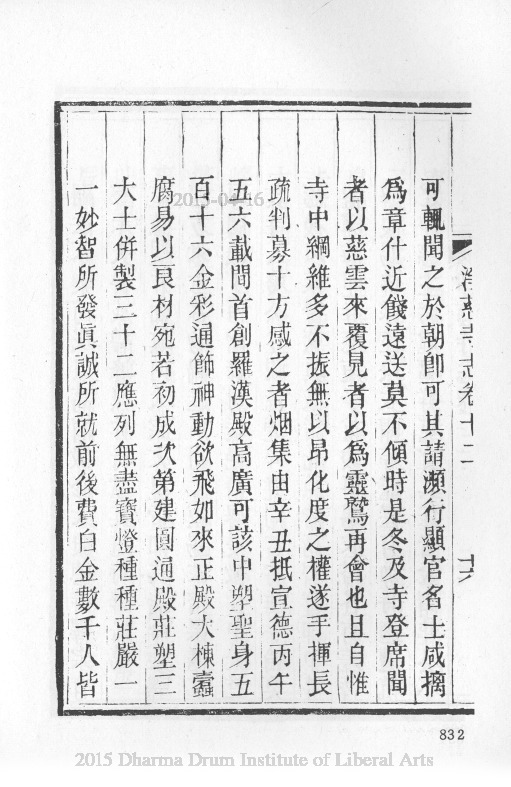 淨慈寺志卷十二 十六
可輒聞之於朝卽可其請瀕行顯官名士咸摛
爲章什近餞遠送莫不傾時是冬及寺登席聞
者以慈雲來覆見者以爲靈鷲再會也且自惟
寺中綱維多不振無以昂化度之權遂手揮長
疏判募十方感之者烟集由辛丑抵宣德丙午
五六載間首創羅漢殿高廣可該中塑聖身五
百十六金彩通飾神動欲飛如來正殿大棟蠹
腐易以良材宛若初成次第建圓通殿莊塑三
大士併製三十二應列無盡寶燈種種莊嚴一
一妙智所發眞誠所就前後費白金數千人皆
832
2015-04-16
2015 Dharma Drum Institute of Liberal Arts